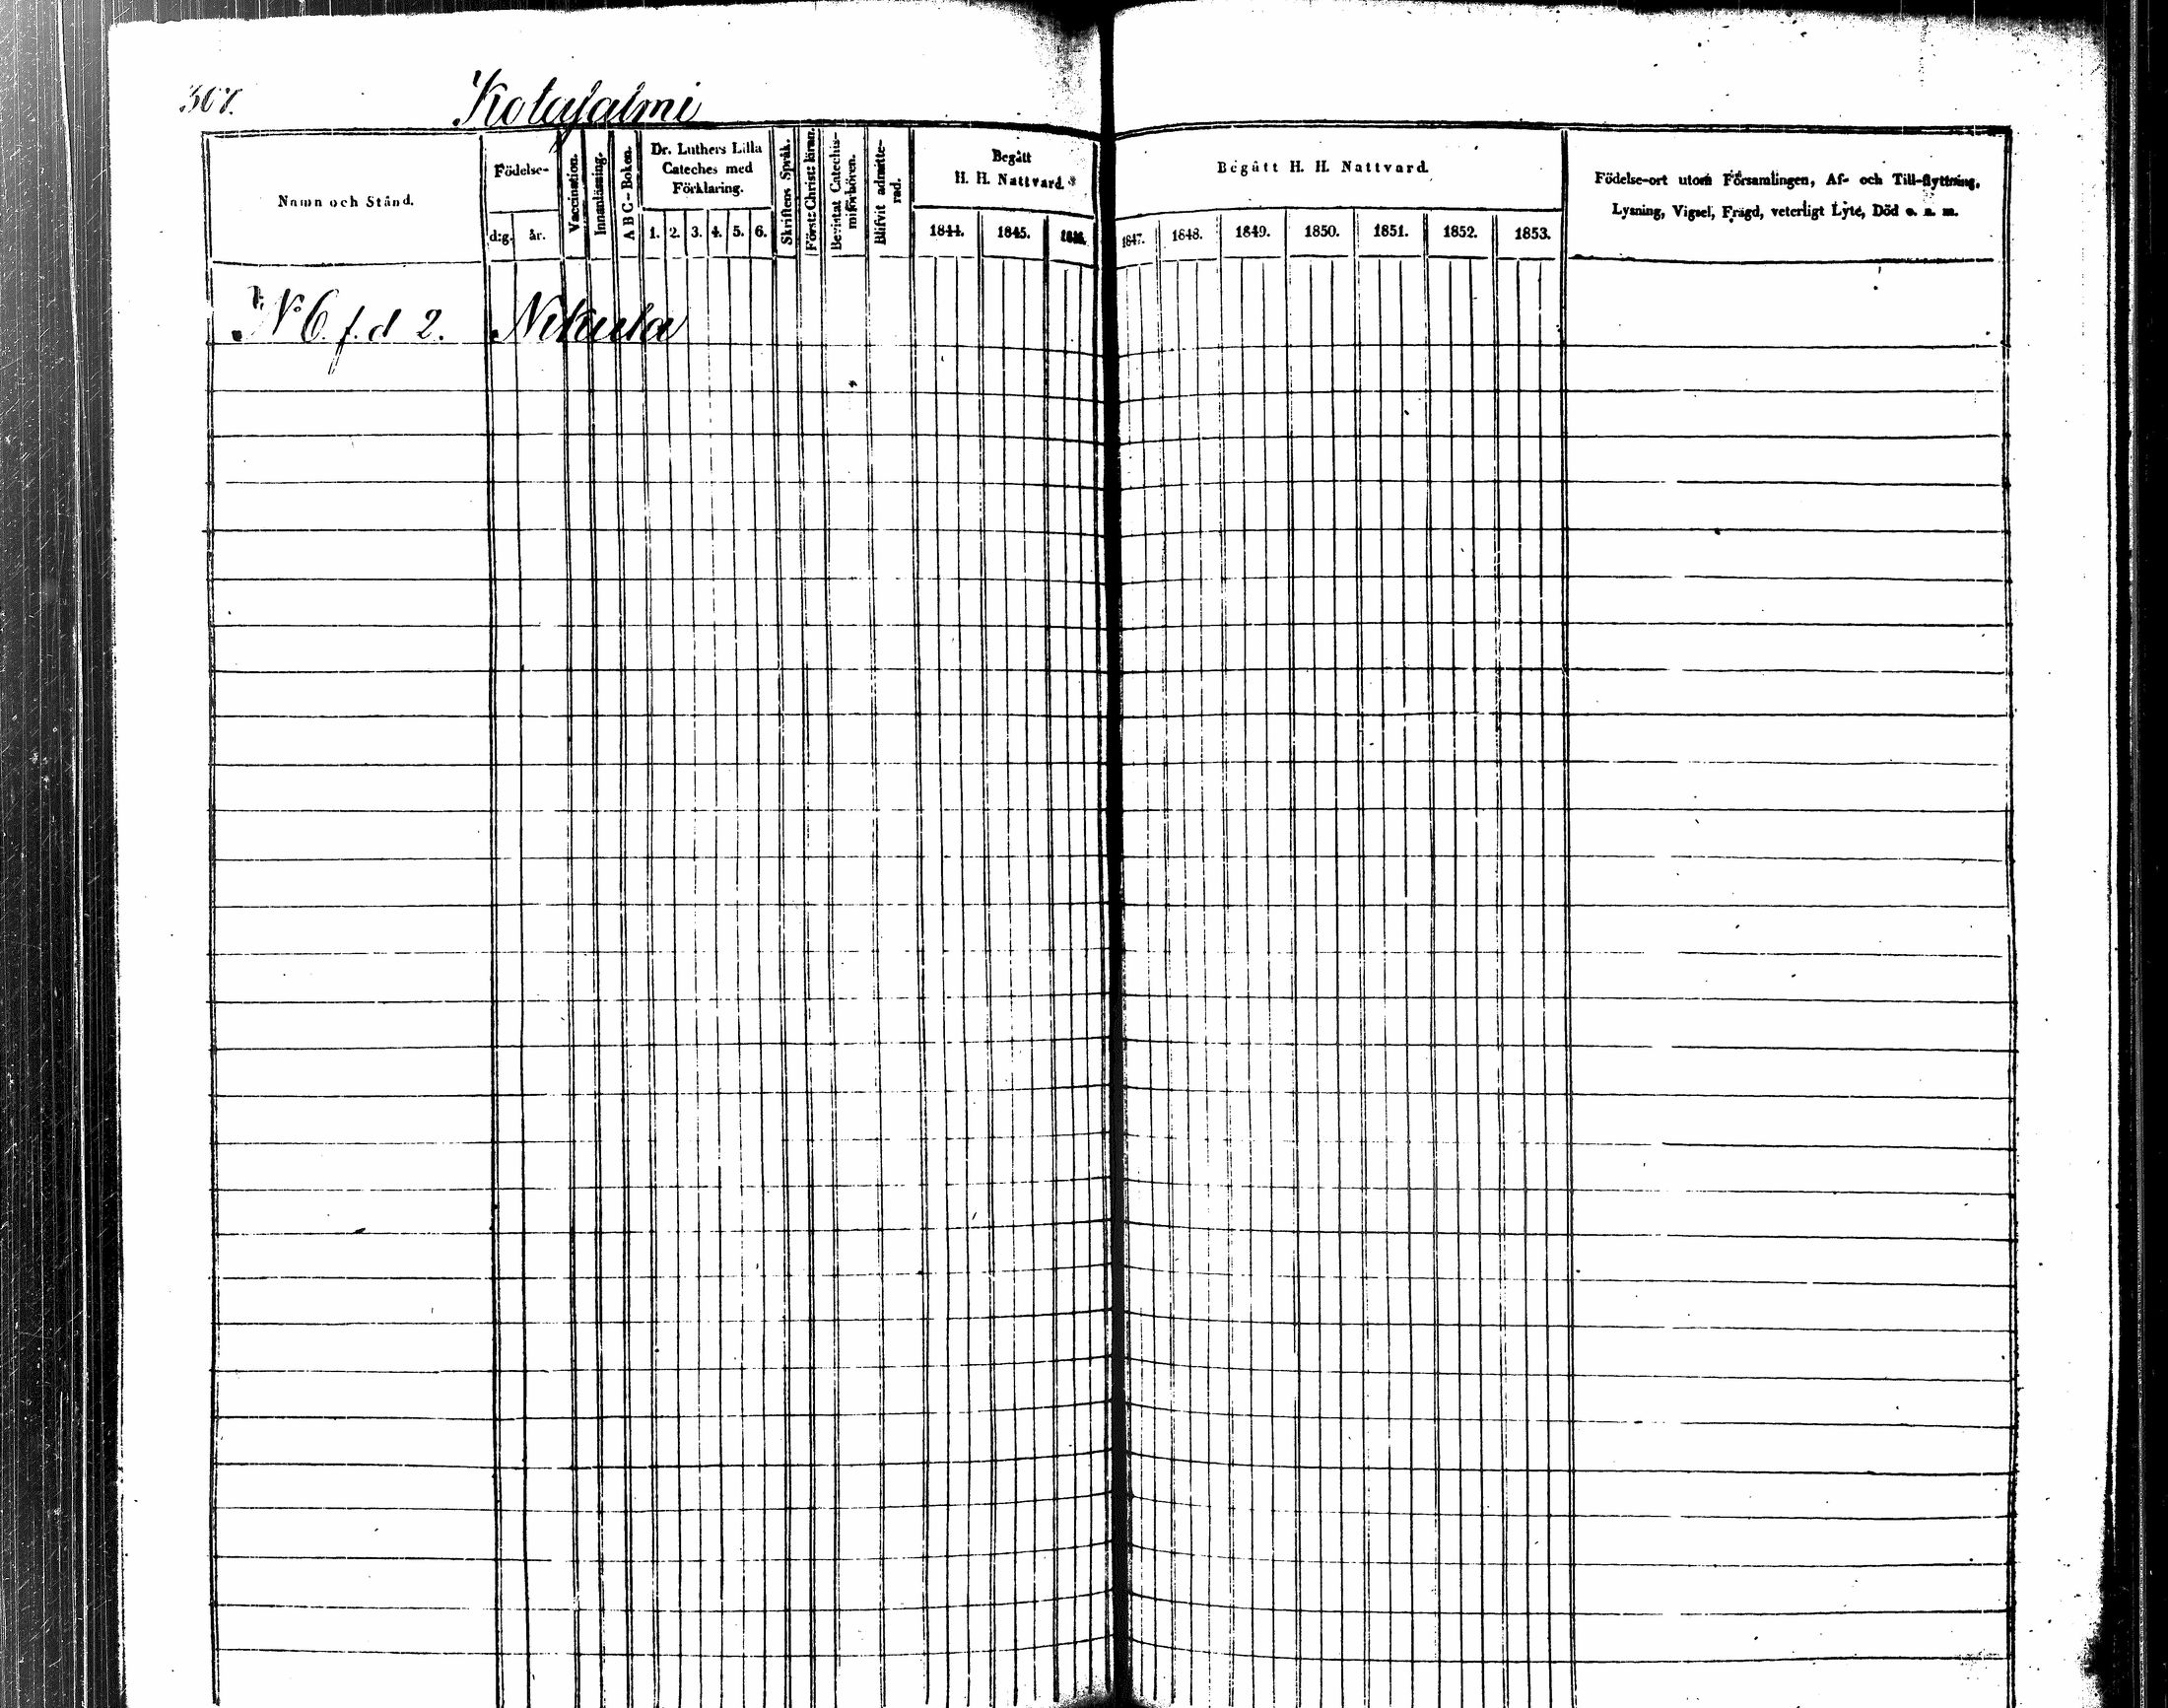 367.
Kotajalmi
Namn och Stånd.
Födelse-
d:g. år.
Vaccination.
Innanläsning.
A B C-Boken.
Dr. Luthers Lilla
Cateches med
Förklaring.
1. 2. 3. 4. 5. 6.
Skriftens Språk.
Först: Christ: läran.
Bevistat Catechis-
miförhören.
Blifvit admitte-
rad.
Begått
H. H. Nattvard.
1844. 1845. 1846.
Begått H. H. Nattvard.
1847. 1848. 1849. 1850. 1851. 1852. 1853.
Födelse-ort utom Församlingen, Af- och Till-flyttning,
Lysning, Vigsel, Frägd, veterligt Lyte, Död o. s. m.
No 6. f. d 2. Nikula